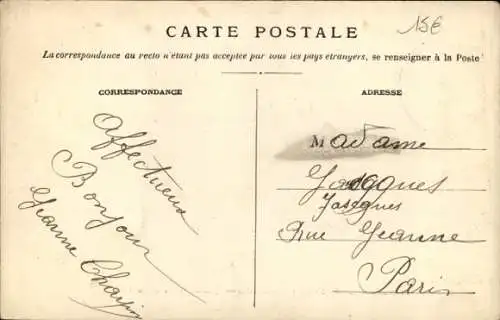 CARTE POSTALE
15€
La correspondance au recto n'étant pas acceptée par tous les pays étrangers, se renseigner à la Poste
CORRESPONDANCE
Affectueux
Bonjour
Jeanne
ADRESSE
Madame
Jacques
Rue Jeanne
Paris